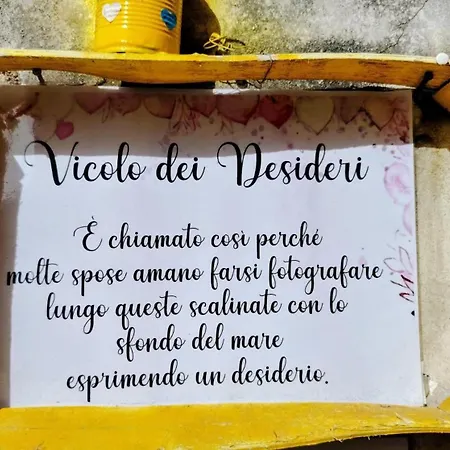 Vicolo dei Desideri
È chiamato così perché
molte spose amano farsi fotografare
lungo queste scalinate con lo
sfondo del mare
esprimendo un desiderio.